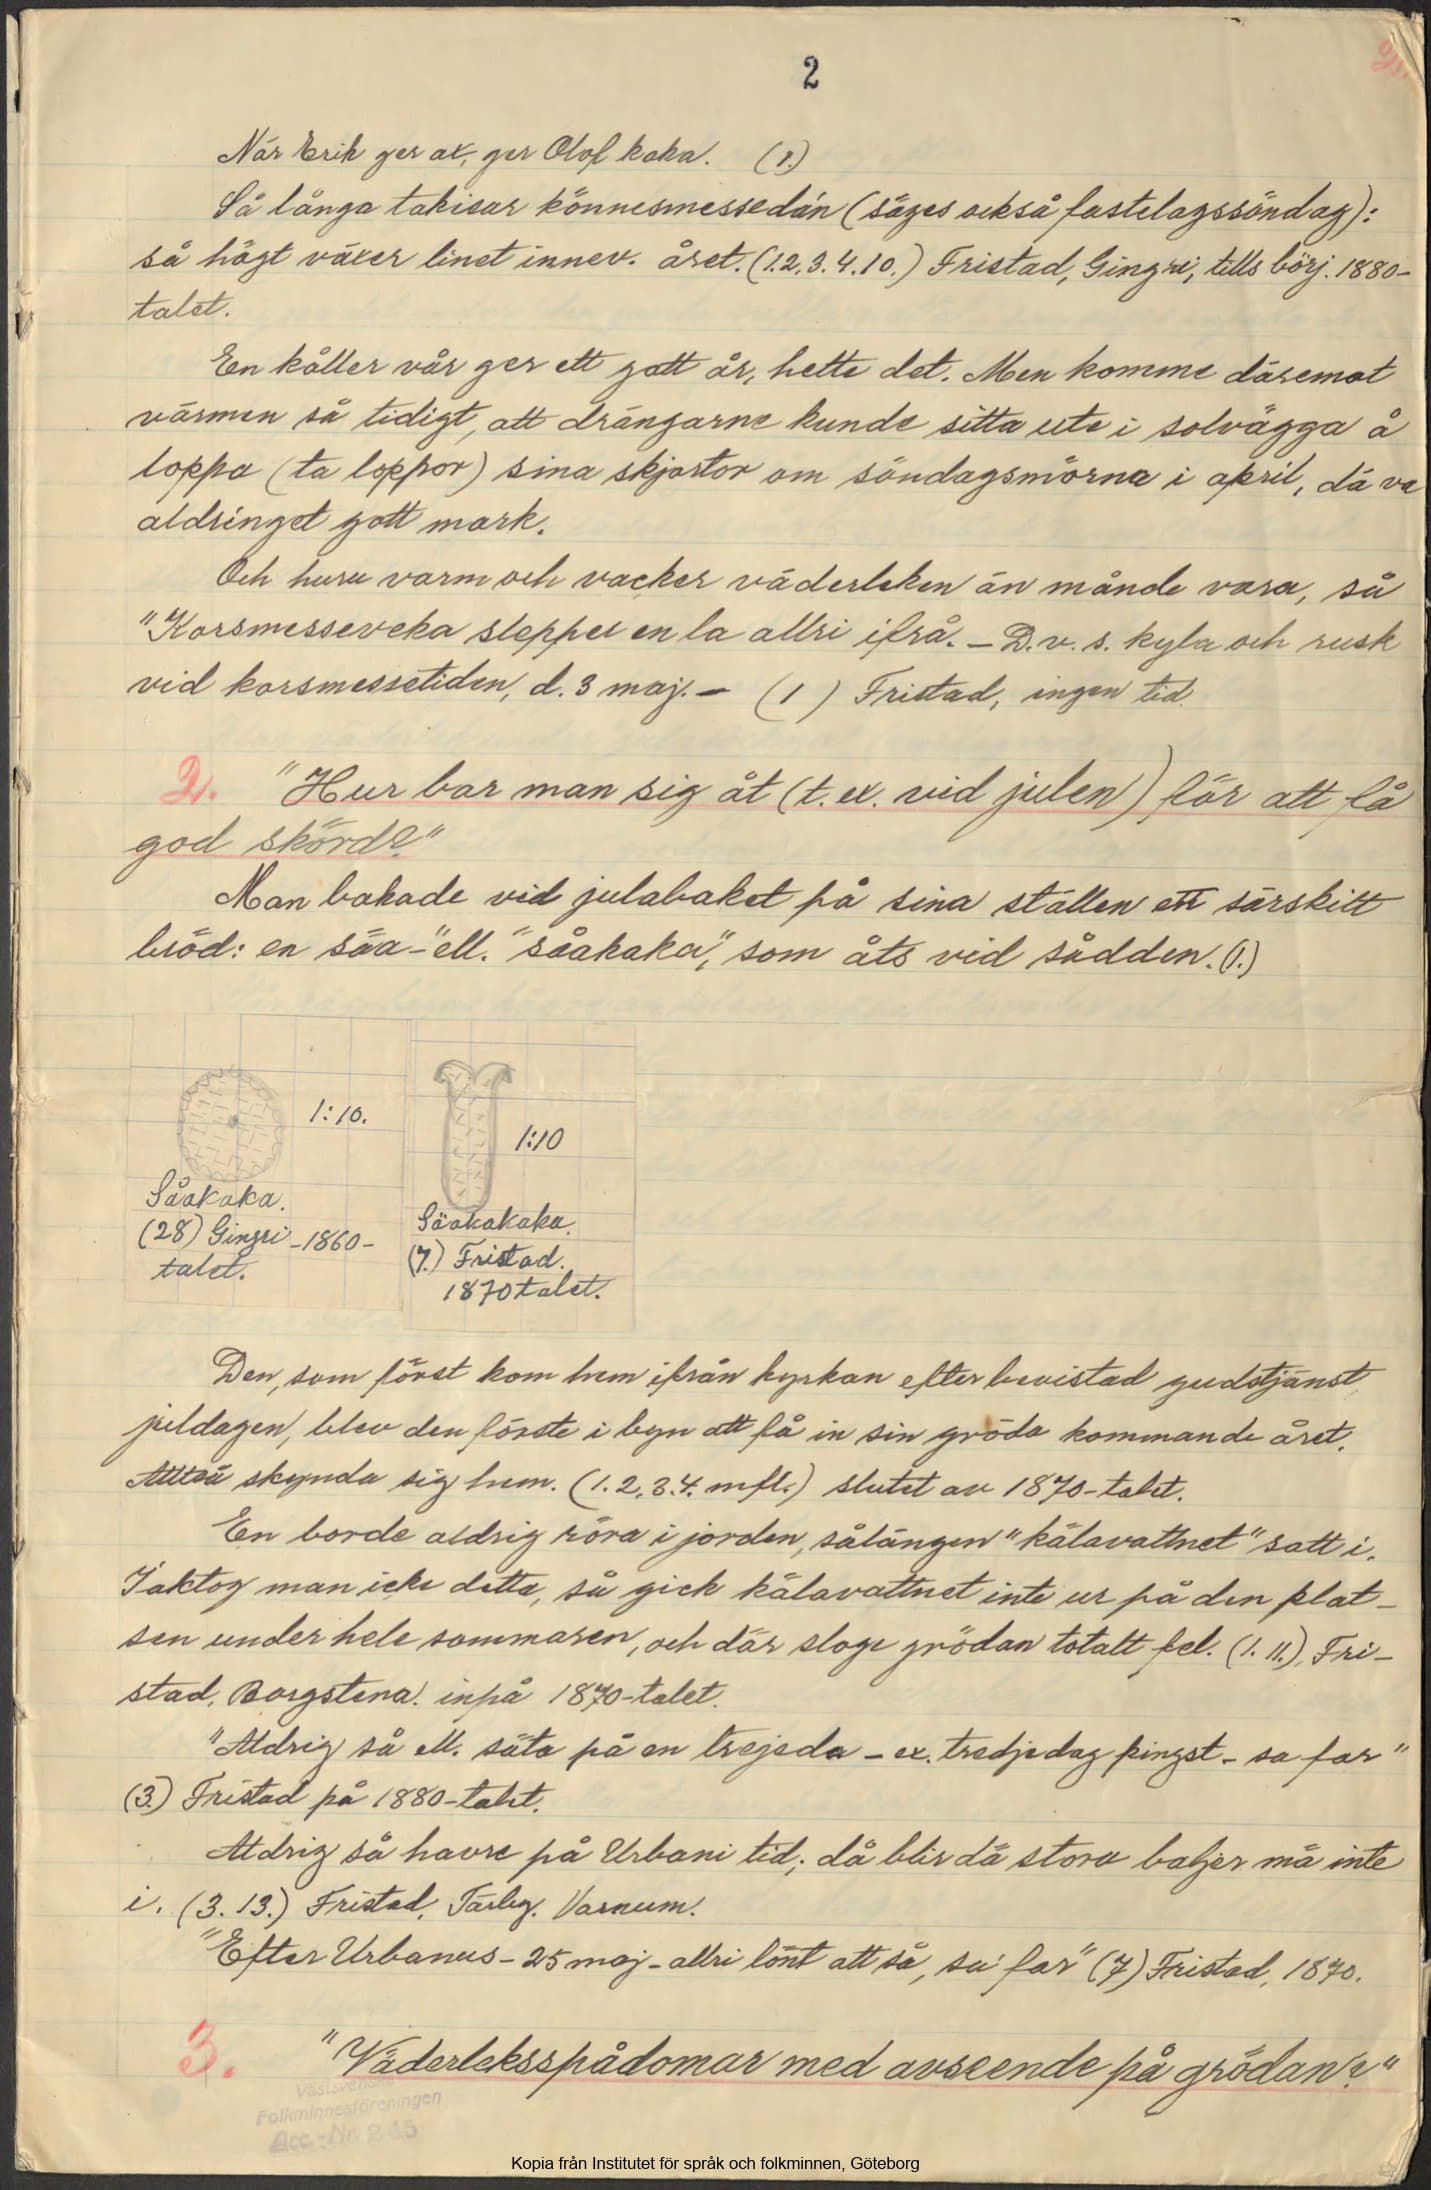 2
När Erik ger ax, ger Olof kaka. (1.)
Så långa takisar könnesmessedán (säges också fastelagssöndag):
så högt växer linet innev. året. (1.2.3.4.10.) Fristad, Gingri, tills börj. 1880-
talet.
En kåller vår ger ett gott år, hette det. Men komme däremot
värmen så tidigt, att drängarne kunde sitta ute i solvägga å
loppa (ta loppor) sina skjortor om söndagsmörna i april, dä va
aldringet gott mark.
Och huru varm och vacker väderleken än månde vara, så
"Korsmesseveka slepper en la allri ifrå. – D.v.s. kyla och rusk
vid korsmessetiden, d. 3 maj. – (1) Fristad, ingen tid.
2. "Hur bar man sig åt (t. ex. vid julen) för att få
god skörd?"
Man bakade vid julabaket på sina ställen ett särskilt
bröd: en såa-" ell. "såakaka", som åts vid sådden. (1.)
1:10.
Såakaka.
(28) Gingri -1860-
talet.
1:10
Såakakaka.
(7.) Fristad.
1870talet.
Den, som först kom hem ifrån kyrkan efter bevistad gudstjänst
juldagen, blev den förste i byn att få in sin gröda kommande året.
Alltså skynda sig hem. (1.2.3.4. mfl.) slutet av 1870-talet.
En borde aldrig röra i jorden, sålängen "kälavattnet" satt i.
Iaktog man icke detta, så gick kälavattnet inte ur på den plat-
sen under hele sommaren, och där sloge grödan totalt fel. (1. 11.), Fri-
stad, Borgstena. inpå 1870-talet.
"Aldrig så ell. säta på en trejeda – ex. tredjedag pingst – sa far"
(3.) Fristad på 1880-talet.
Aldrig så havre på Urbani tid; då blir dä stora baljer mä inte
i. (3. 13.) Fristad, Tärby. Varnum.
"Efter Urbanus – 25 maj – allri lönt att så, sa' far" (7) Fristad, 1870.
3. "Väderleksspådomar med avseende på grödan?"
Folkminnesföreningen
Kopia från Institutet för språk och folkminnen, Göteborg